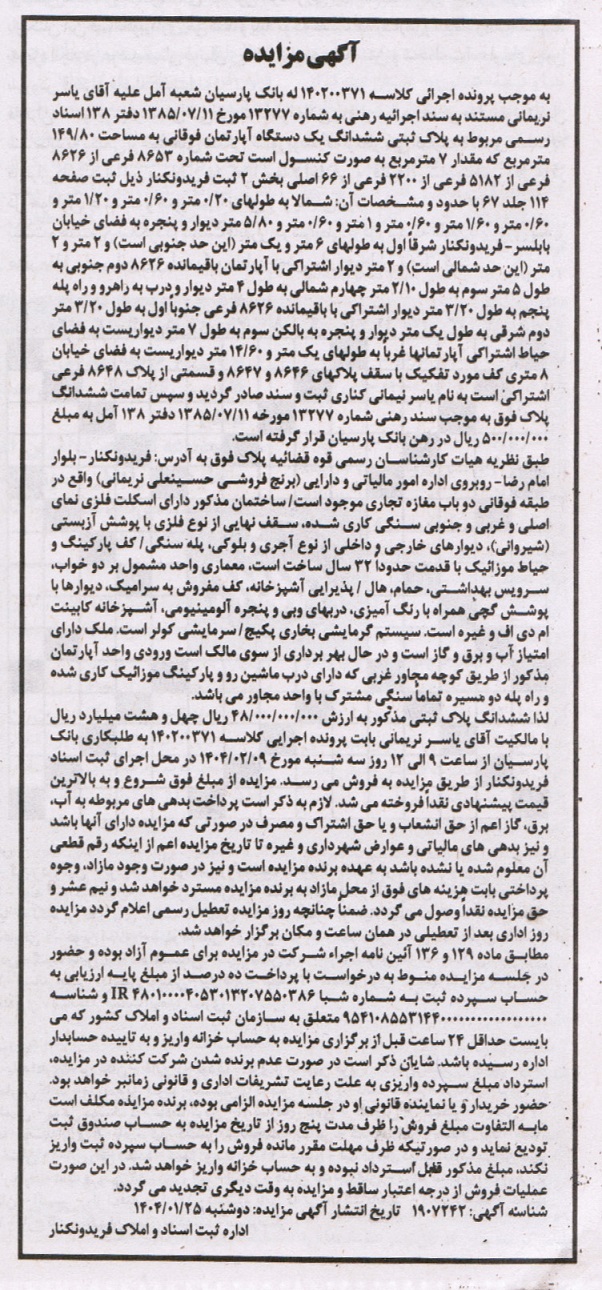 آگهی مزایده
به موجب پرونده اجرائی کلاسه ۱۴۰۲۰۰۳۷۱ له بانک پارسیان شعبه آمل علیه آقای یاسر
نریمانی مستند به سند اجرائیه رهنی به شماره ۱۳۲۷۷ مورخ ۱۳۸۵/۰۷/۱۱ دفتر ۱۳۸ اسناد
رسمی مربوط به پلاک ثبتی ششدانگ یک دستگاه آپارتمان فوقانی به مساحت ۱۴۹/۸۰
مترمربع که مقدار ۷ مترمربع به صورت کنسول است تحت شماره ۸۶۵۳ فرعی از ۸۶۲۶
فرعی از ۵۱۸۲ فرعی از ۲۲۰۰ فرعی از ۶۶ اصلی بخش ۲ ثبت فریدونکنار ذیل ثبت صفحه
۱۱۴ جلد ۶۷ با حدود و مشخصات آن: شمالا به طولهای ۰/۲۰ متر و ۰/۶۰ متر و ۱/۲۰ متر و
۰/۶۰ متر و ۱/۶۰ متر و ۰/۶۰ متر و ۱ متر و ۰/۶۰ متر و ۵/۸۰ متر دیوار و پنجره به فضای خیابان
بابلسر - فریدونکنار شرقاً اول به طولهای ۶ متر و یک متر (این حد جنوبی است) و ۲ متر و ۲
متر (این حد شمالی است) و ۲ متر دیوار اشتراکی با آپارتمان باقیمانده ۸۶۲۶ دوم جنوبی به
طول ۵ متر سوم به طول ۲/۱۰ متر چهارم شمالی به طول ۴ متر دیوار و درب به راهرو و راه پله
پنجم به طول ۳/۲۰ متر دیوار اشتراکی با باقیمانده ۸۶۲۶ فرعی جنوباً اول به طول ۳/۲۰ متر
دوم شرقی به طول یک متر دیوار و پنجره به بالکن سوم به طول ۷ متر دیواریست به فضای
حیاط اشتراکی آپارتمانها غرباً به طولهای یک متر و ۱۴/۶۰ متر دیواریست به فضای خیابان
۸ متری کف مورد تفکیک با سقف پلاکهای ۸۶۴۶ و ۸۶۴۷ و قسمتی از پلاک ۸۶۴۸ فرعی
اشتراکی است به نام یاسر نیمانی کناری ثبت و سند صادر گردید و سپس تمامت ششدانگ
پلاک فوق به موجب سند رهنی شماره ۱۳۲۷۷ مورخه ۱۳۸۵/۰۷/۱۱ دفتر ۱۳۸ آمل به مبلغ
۵۰۰/۰۰۰/۰۰۰ ریال در رهن بانک پارسیان قرار گرفته است.
طبق نظریه هیات کارشناسان رسمی قوه قضائیه پلاک فوق به آدرس: فریدونکنار- بلوار
امام رضا- روبروی اداره امور مالیاتی و دارایی (برنج فروشی حسینعلی نریمانی) واقع در
طبقه فوقانی دو باب مغازه تجاری موجود است/ ساختمان مذکور دارای اسکلت فلزی نمای
اصلی و غربی و جنوبی سنگی کاری شده، سقف نهایی از نوع فلزی با پوشش آزبستی
(شیروانی)، دیوارهای خارجی و داخلی از نوع آجری و بلوکی، پله سنگی/ کف پارکینگ و
حیاط موزائیک با قدمت حدوداً ۳۲ سال ساخت است، معماری واحد مشمول بر دو خواب،
سرویس بهداشتی، حمام، هال / پذیرایی آشپزخانه، کف مفروش به سرامیک، دیوارها با
پوشش گچی همراه با رنگ آمیزی، دربهای وبی و پنجره آلومینیومی، آشپزخانه کابینت
ام دی اف و غیره است. سیستم گرمایشی بخاری پکیج/ سرمایشی کولر است. ملک دارای
امتیاز آب و برق و گاز است و در حال بهر برداری از سوی مالک است ورودی واحد آپارتمان
مذکور از طریق کوچه مجاور غربی که دارای درب ماشین رو و پارکینگ موزائیک کاری شده
و راه پله دو مسیره تماماً سنگی مشترک با واحد مجاور می باشد.
لذا ششدانگ پلاک ثبتی مذکور به ارزش ۴۸/۰۰۰/۰۰۰/۰۰۰ ریال چهل و هشت میلیارد ریال
با مالکیت آقای یاسر نریمانی بابت پرونده اجرایی کلاسه ۱۴۰۲۰۰۳۷۱ به طلبکاری بانک
پارسیان از ساعت ۹ الی ۱۲ روز سه شنبه مورخ ۱۴۰۴/۰۲/۰۹ در محل اجرای ثبت اسناد
فریدونکنار از طریق مزایده به فروش می رسد. مزایده از مبلغ فوق شروع و به بالاترین
قیمت پیشنهادی نقداً فروخته می شد. لازم به ذکر است پرداخت بدهی های مربوطه به آب،
برق، گاز اعم از حق انشعاب و یا حق اشتراک و مصرف در صورتی که مزایده دارای آنها باشد
و نیز بدهی های مالیاتی و عوارض شهرداری و غیره تا تاریخ مزایده اعم از اینکه رقم قطعی
آن معلوم شده یا نشده باشد به عهده برنده مزایده است و نیز در صورت وجود مازاد، وجوه
پرداختی بابت هزینه های فوق از محل مازاد به برنده مزایده مسترد خواهد شد و نیم عشر و
حق مزایده نقداً وصول می گردد. ضمناً چنانچه روز مزایده تعطیل رسمی اعلام گردد مزایده
روز اداری بعد از تعطیلی در همان ساعت و مکان برگزار خواهد شد.
مطابق ماده ۱۲۹ و ۱۳۶ آئین نامه اجراء شرکت در مزایده برای عموم آزاد بوده و حضور
در جلسه مزایده منوط به درخواست با پرداخت ده درصد از مبلغ پایه ارزیابی به
حساب سپرده ثبت به شماره شبا IR ۴۸۰۱۰۰۰۰۴۰۵۳۰۱۳۲۰۷۵۵۰۳۸۶ و شناسه
متعلق به سازمان ثبت اسناد و املاک کشور که می
بایست حداقل ۲۴ ساعت قبل از برگزاری مزایده به حساب خزانه واریز و به تاییده حسابدار
اداره رسیده باشد. شایان ذکر است در صورت عدم برنده شدن شرکت کننده در مزایده،
استرداد مبلغ سپرده واریزی به علت رعایت تشریفات اداری و قانونی زمانبر خواهد بود.
حضور خریدار و یا نماینده قانونی او در جلسه مزایده الزامی بوده، برنده مزایده مکلف است
مابه التفاوت مبلغ فروش را ظرف مدت پنج روز از تاریخ مزایده به حساب صندوق ثبت
تودیع نماید و در صورتیکه ظرف مهلت مقرر مانده فروش را به حساب سپرده ثبت واریز
نکند، مبلغ مذکور قابل استرداد نبوده و به حساب خزانه واریز خواهد شد. در این صورت
عملیات فروش از درجه اعتبار ساقط و مزایده به وقت دیگری تجدید می گردد.
شناسه آگهی: ۱۹۰۷۲۴۲ تاریخ انتشار آگهی مزایده: دوشنبه ۱۴۰۴/۰۱/۲۵
اداره ثبت اسناد و املاک فریدونکنار